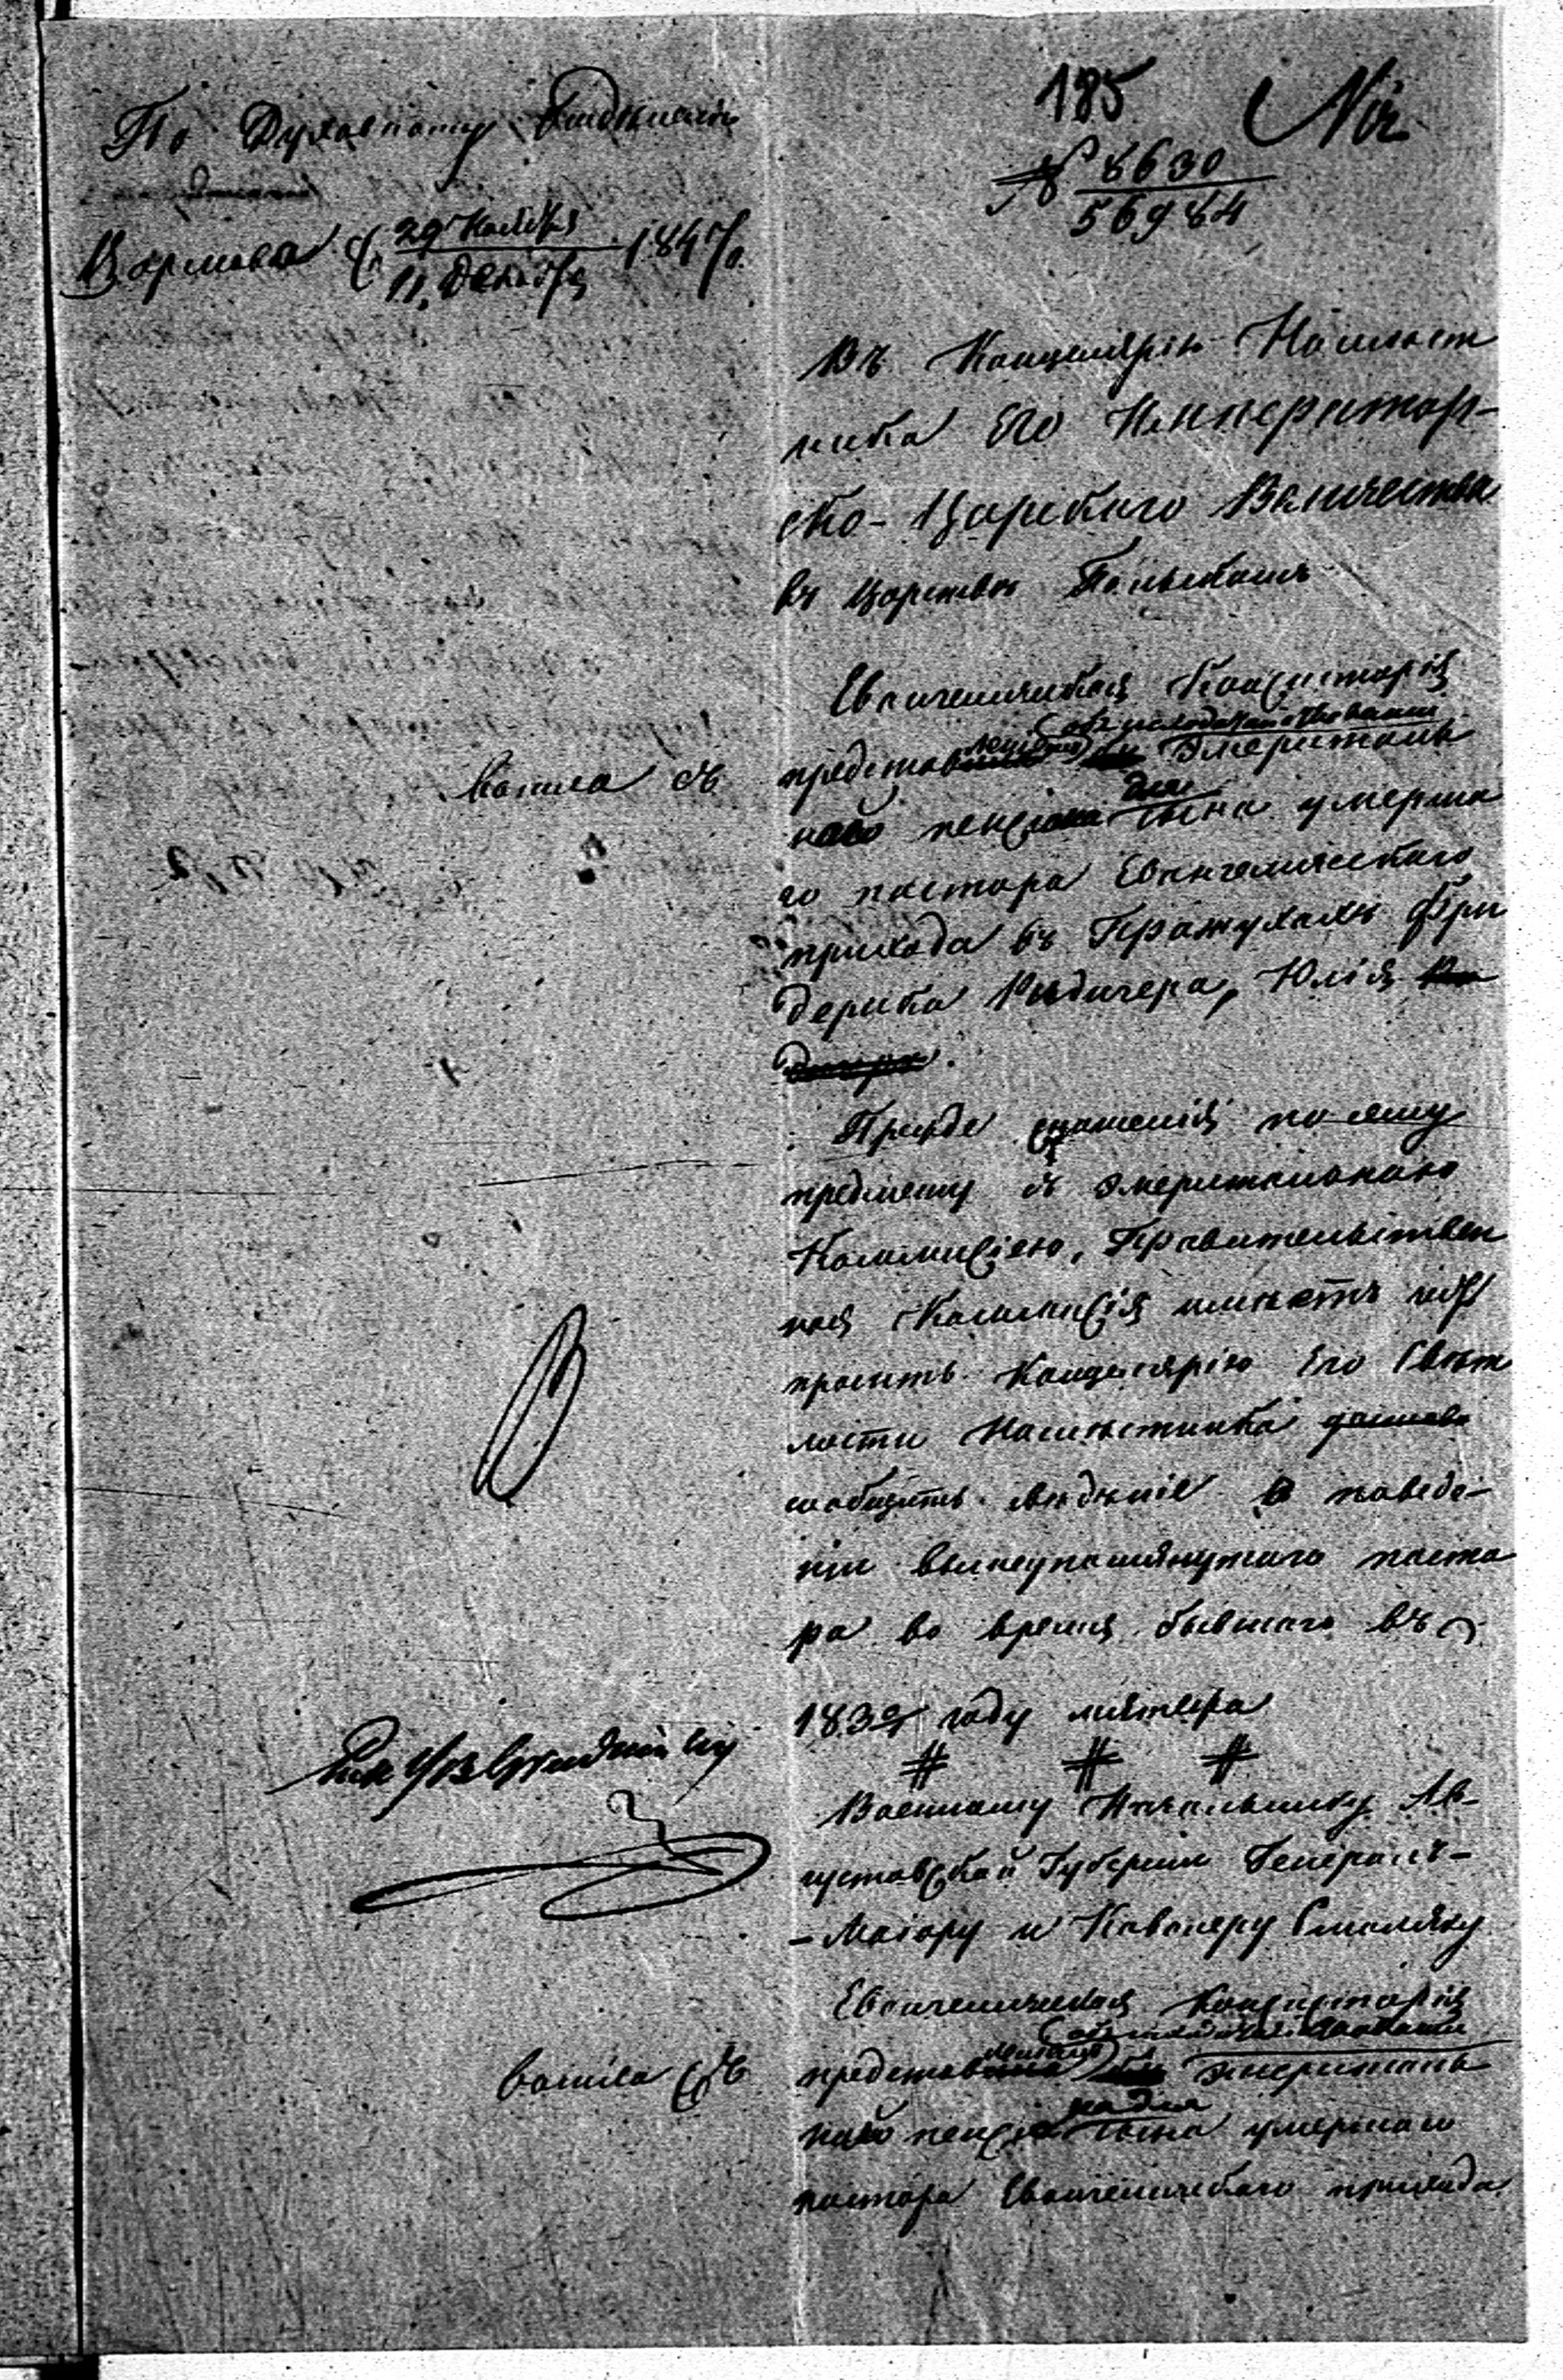 По Духовному Отделенію
185
№ 8630
56984
Варшава 29 Ноября 1847 г.
11 Декабря
Въ Канцелярію Намѣст
ника Его Император-
ско-Царскаго Величества
въ Царствѣ Польскомъ
Евангелическая Консисторія
вошла съ представленіемъ объ исходатайствованіи Эмериталь
наго пенсіона для сына умерша
го пастора Евангелическаго
прихода въ Пражухахъ Фри
дерика Ридигера, Юлія
Прежде сношенія по сему
предмету съ Эмеритальною
Коммисіею, Правительствен
ная Коммисія имѣетъ честь
просить Канцелярію Его Свѣт
лости Намѣстника
сообщить свѣдѣніе о поведе-
ніи вышеупомянутаго пасто
ра во время бывшаго въ
183 году мятежа
# # #
Военному Начальнику Ав-
густовской Губерніи Генералъ-
-Маіору и Кавалеру
Евангелическая Консисторія
вошла съ представленіемъ объ исходатайствованіи Эмериталь
наго пенсіона для сына умершаго
пастора Евангелическаго прихода